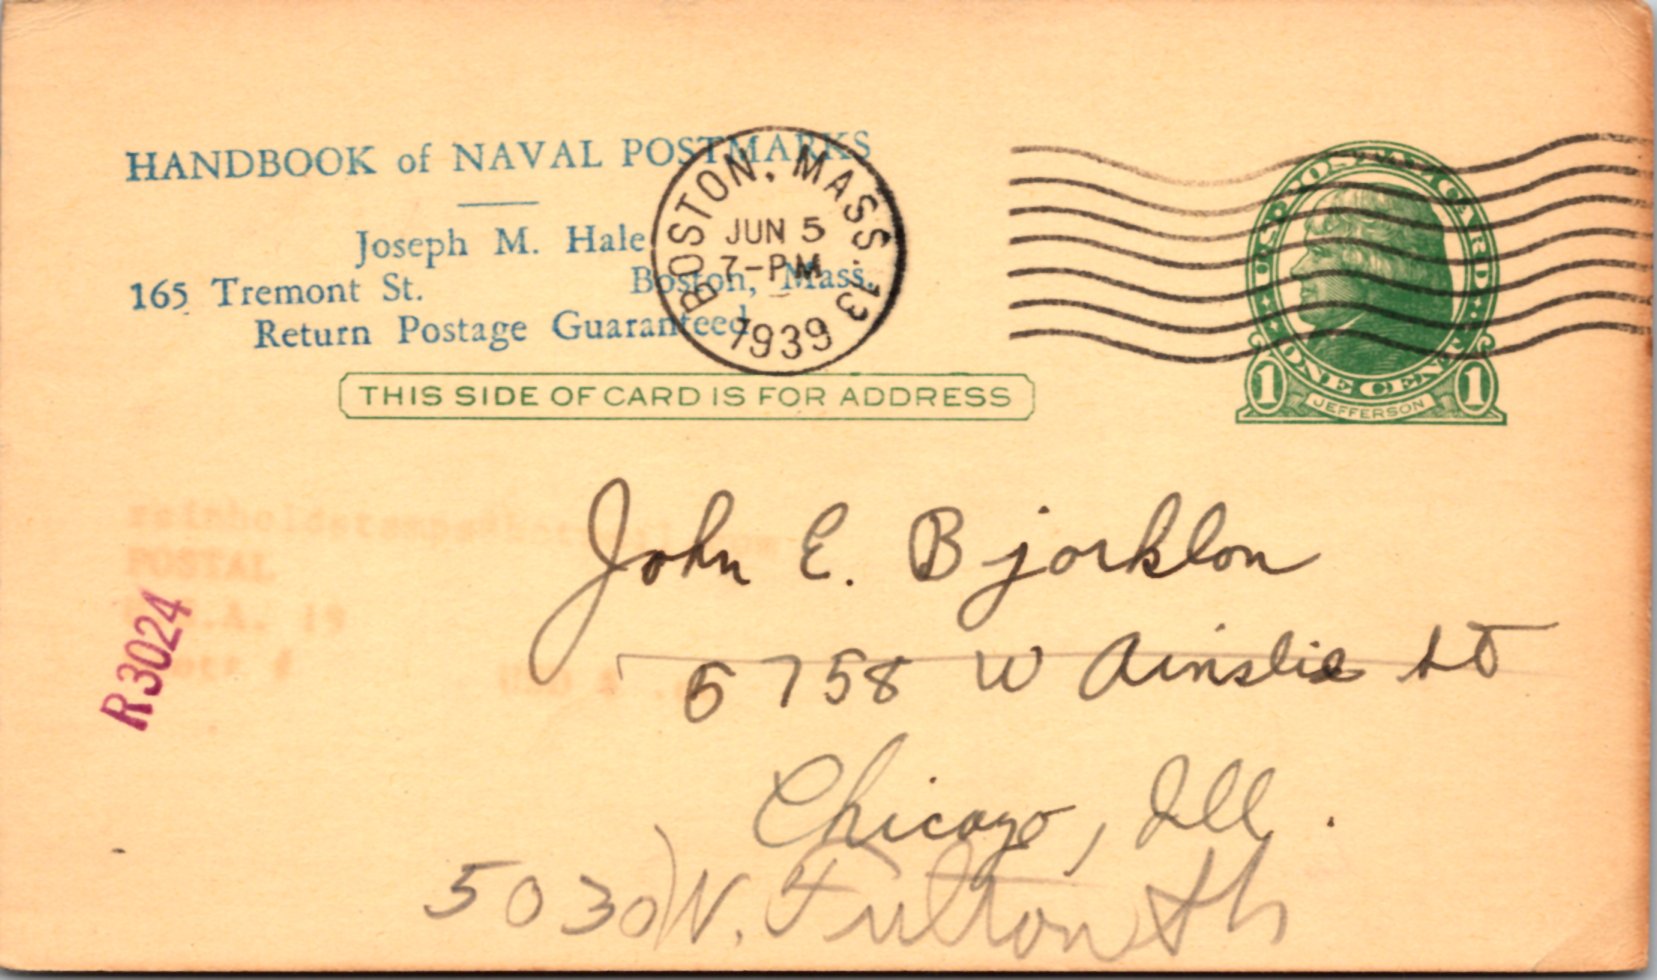 HANDBOOK of NAVAL POSTMARKS
Joseph M. Hale
165 Tremont St. Boston, Mass.
Return Postage Guaranteed
BOSTON, MASS. 13
JUN 5
7-PM
1939
U.S. POSTAL CARD
ONE CENT
1 JEFFERSON 1
THIS SIDE OF CARD IS FOR ADDRESS
reinholdstamps@hotmail.com
POSTAL
U.S.A. 19
USD $
R3024
John E. Bjorklon
5758 W Ainslie St
Chicago, Ill.
5030 N.